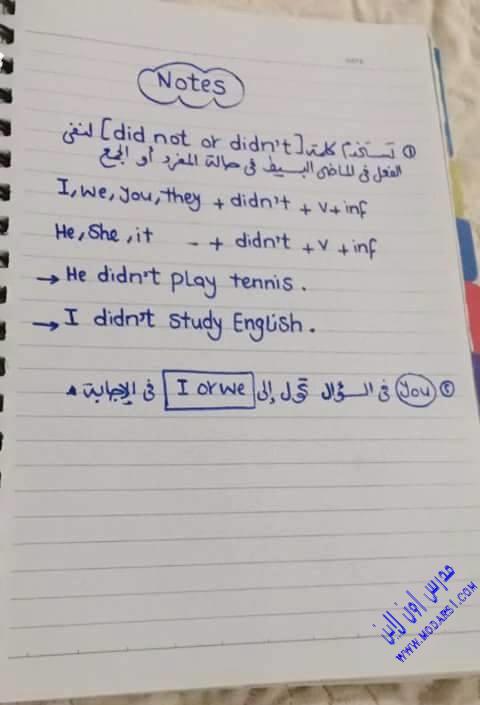 Notes
① تستخدم كلمة [did not or didn't] لنفى
الفعل فى الماضى البسيط فى حالة المفرد أو الجمع
I, we, you, they + didn't + v + inf
He, She, it -- + didn't + v + inf
→ He didn't play tennis.
→ I didn't study English.
② you فى السؤال تحول إلى I or we فى الإجابة
مدرس اون لاين
WWW.MODARS1.COM